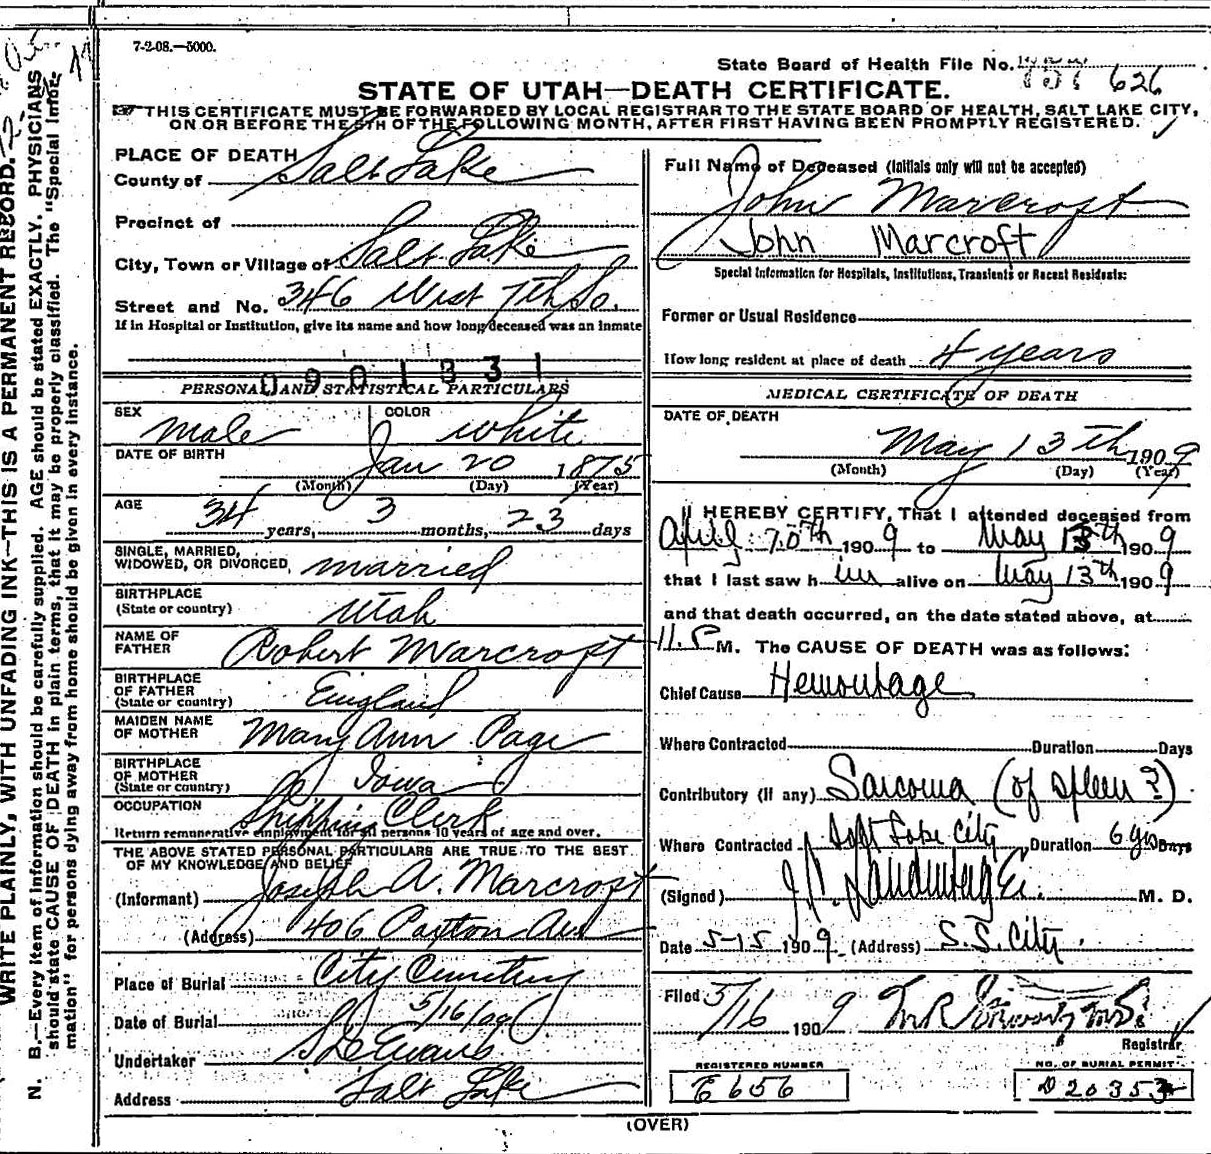 7-2-08.—5000.
State Board of Health File No. 626
STATE OF UTAH—DEATH CERTIFICATE.
THIS CERTIFICATE MUST BE FORWARDED BY LOCAL REGISTRAR TO THE STATE BOARD OF HEALTH, SALT LAKE CITY,
ON OR BEFORE THE 5TH OF THE FOLLOWING MONTH, AFTER FIRST HAVING BEEN PROMPTLY REGISTERED.
PLACE OF DEATH
County of Salt Lake
Precinct of
City, Town or Village of Salt Lake
Street and No. 346 West 7th So.
If in Hospital or Institution, give its name and how long deceased was an inmate
0901331
PERSONAL AND STATISTICAL PARTICULARS
SEX male COLOR white
DATE OF BIRTH Jan 20 1875
(Month) (Day) (Year)
AGE 34 years, 3 months, 23 days
SINGLE, MARRIED,
WIDOWED, OR DIVORCED, married
BIRTHPLACE
(State or country) Utah
NAME OF
FATHER Robert Marcroft
BIRTHPLACE
OF FATHER
(State or country) England
MAIDEN NAME
OF MOTHER Mary Ann Page
BIRTHPLACE
OF MOTHER
(State or country) Iowa
OCCUPATION Shipping Clerk
Return remunerative employment for all persons 10 years of age and over.
THE ABOVE STATED PERSONAL PARTICULARS ARE TRUE TO THE BEST
OF MY KNOWLEDGE AND BELIEF
(Informant) Joseph A. Marcroft
(Address) 406 Paxton Ave
Place of Burial City Cemetery
Date of Burial 5/16/09
Undertaker Evans
Address Salt Lake
Full Name of Deceased (Initials only will not be accepted)
John Marcroft
John Marcroft
Special Information for Hospitals, Institutions, Transients or Recent Residents:
Former or Usual Residence
How long resident at place of death 4 years
MEDICAL CERTIFICATE OF DEATH
DATE OF DEATH
May 13th 1909
(Month) (Day) (Year)
I HEREBY CERTIFY, That I attended deceased from
April 1909 to May 13th 1909
that I last saw him alive on May 13th 1909
and that death occurred, on the date stated above, at
M. The CAUSE OF DEATH was as follows:
Chief Cause Hemorrhage
Where Contracted Duration Days
Contributory (if any) Sarcoma (of spleen?)
Where Contracted Salt Lake City Duration 6 yrs Days
(Signed) M. D.
Date 5-15 1909. (Address) S. L. City.
Filed 5/16 1909
Registrar
REGISTERED NUMBER
E656
NO. OF BURIAL PERMIT
D20353
(OVER)
WRITE PLAINLY, WITH UNFADING INK—THIS IS A PERMANENT RECORD.
N. B.—Every item of Information should be carefully supplied. AGE should be stated EXACTLY. PHYSICIANS
should state CAUSE OF DEATH in plain terms, that it may be properly classified. The "Special Infor-
mation" for persons dying away from home should be given in every instance.